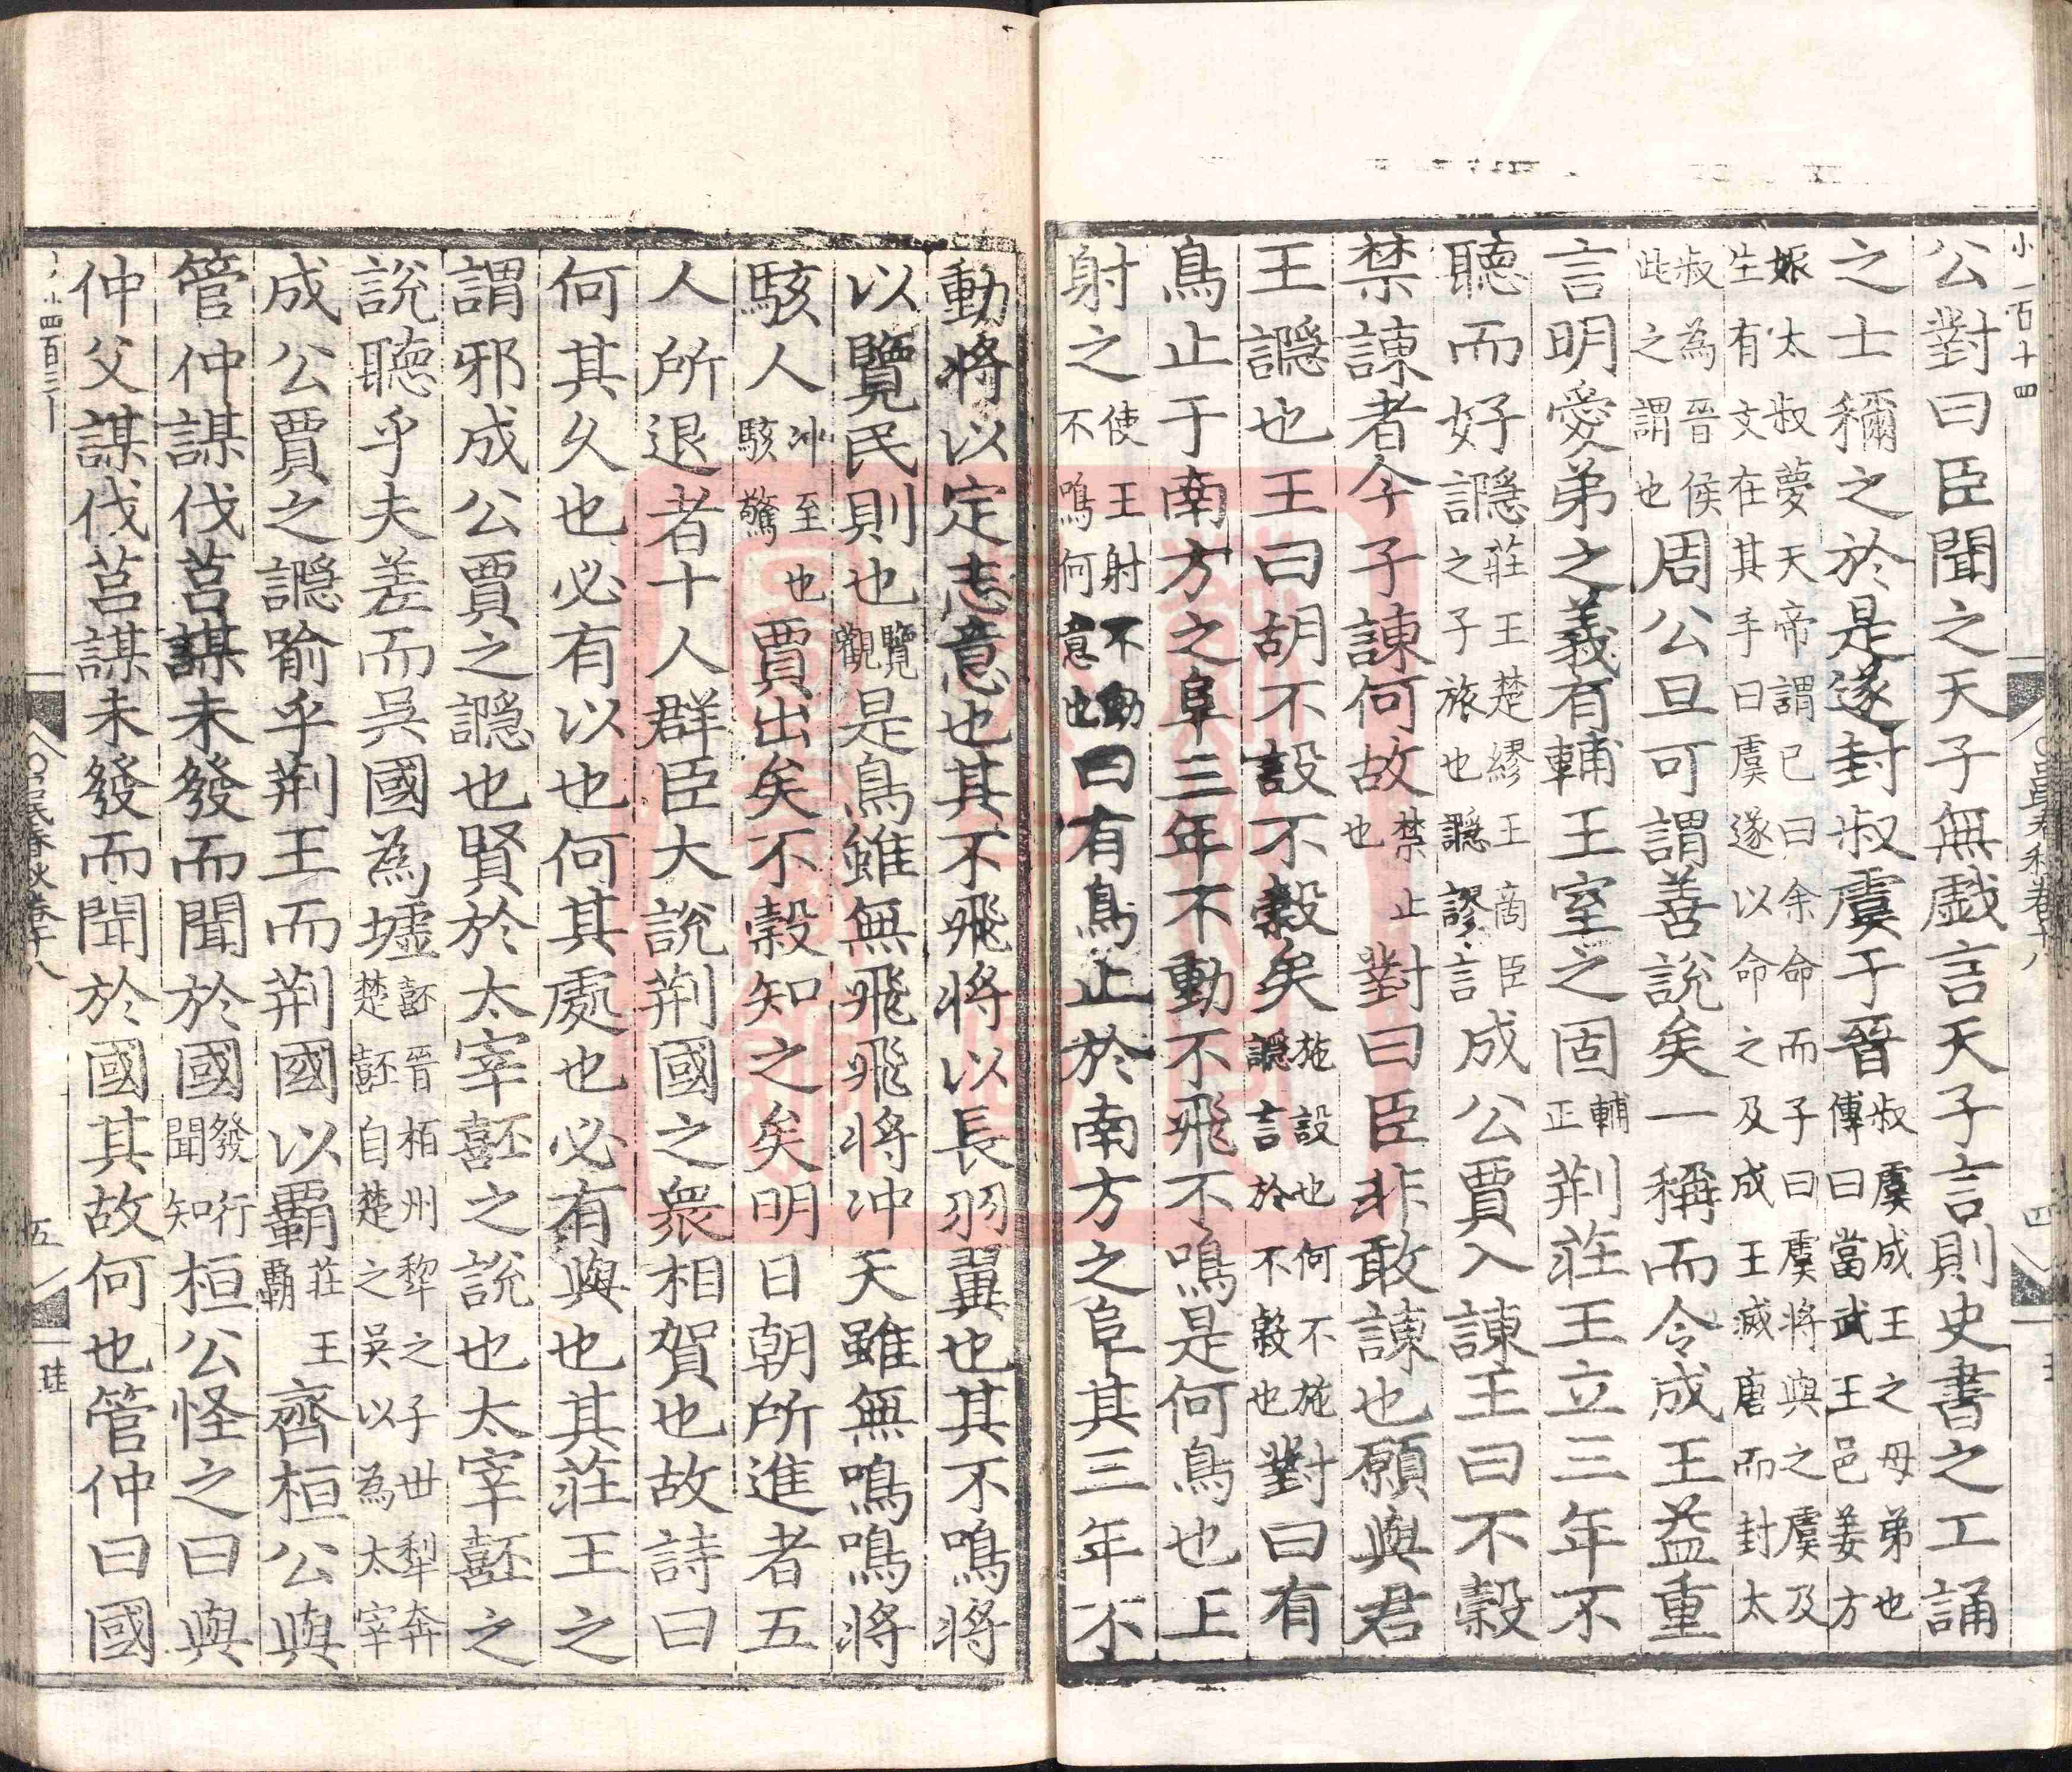 小一百十四
公對曰臣聞之天子無戲言天子言則史書之工誦
之士穪之於是遂封叔虞于晉叔虞成王之母弟也傳曰當武王邑姜方
娠太叔夢天帝謂已曰余命而子曰虞將與之虞及生有文在其手曰虞遂以命之及成王滅唐而封太
叔為晉侯此之謂也周公旦可謂善說矣一稱而令成王益重
言明愛弟之義有輔王室之固輔正荊莊王立三年不
聽而好讔莊王楚繆王啇臣之子旅也讔謬言成公賈入諫王曰不穀
禁諫者今子諫何故禁止也對曰臣非敢諫也願與君
王讔也王曰胡不設不穀矣施設也何不施讔言於不穀也對曰有
鳥止于南方之阜三年不動不飛不鳴是何鳥也王
射之使王射不動不鳴何意也曰有鳥止於南方之阜其三年不
動將以定志意也其不飛將以長羽翼也其不鳴將
以覽民則也覽觀是鳥雖無飛飛將沖天雖無鳴鳴將
駭人沖至也駭驚賈出矣不穀知之矣明日朝所進者五
人所退者十人群臣大說荊國之衆相賀也故詩曰
何其久也必有以也何其處也必有與也其莊王之
謂邪成公賈之讔也賢於太宰嚭之說也太宰嚭之
說聽乎夫差而吳國為墟嚭晉栢州犂之子世犁奔楚嚭自楚之吳以為太宰
成公賈之讔喻乎荊王而荊國以霸莊王霸齊桓公與
管仲謀伐莒謀未發而聞於國發行聞知桓公怪之曰與
仲父謀伐莒謀未發而聞於國其故何也管仲曰國
呂氏春秋卷十八
五